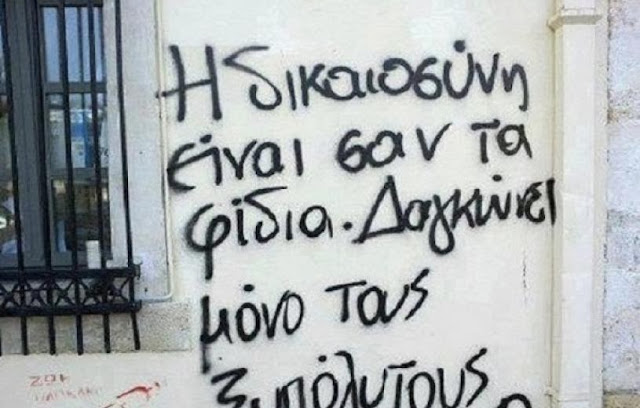 Η δικαιοσύνη
είναι σαν τα
φίδια. Δαγκώνει
μόνο τους
ξυπόλυτους